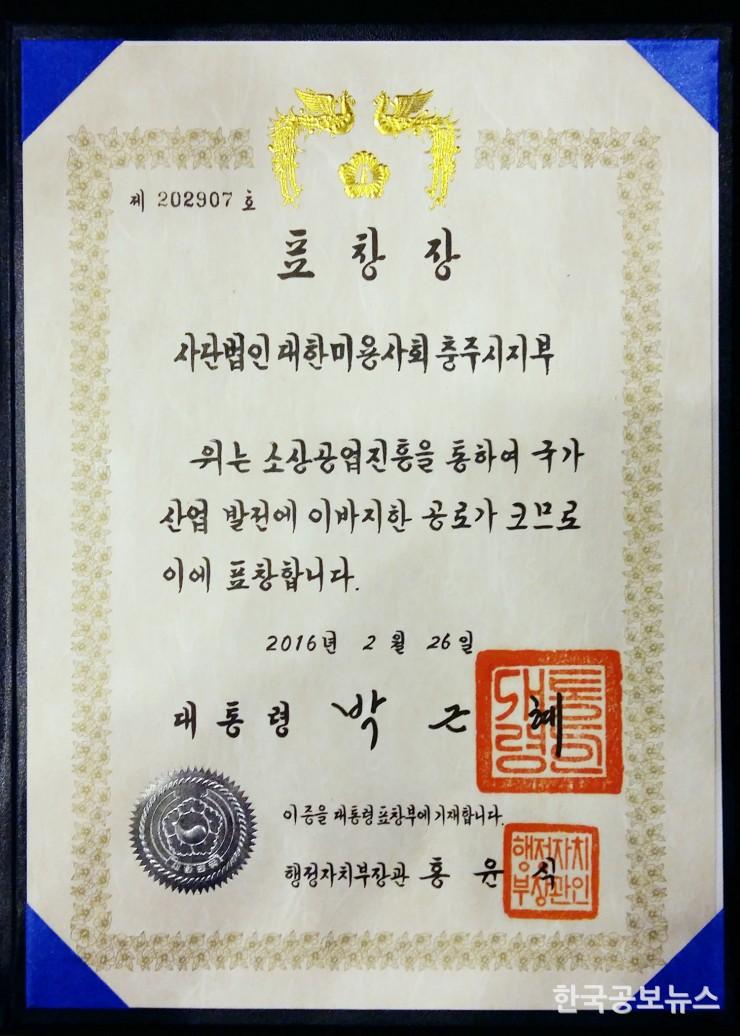 제 202907 호
표창장
사단법인 대한미용사회 충주시지부
위는 소상공업진흥을 통하여 국가
산업 발전에 이바지한 공로가 크므로
이에 표창합니다.
2016년 2월 26일
대통령 박근혜
대통령의인
이 증을 대통령표창부에 기재합니다.
행정자치부장관 홍윤식
행정자치
부장관인
한국공보뉴스